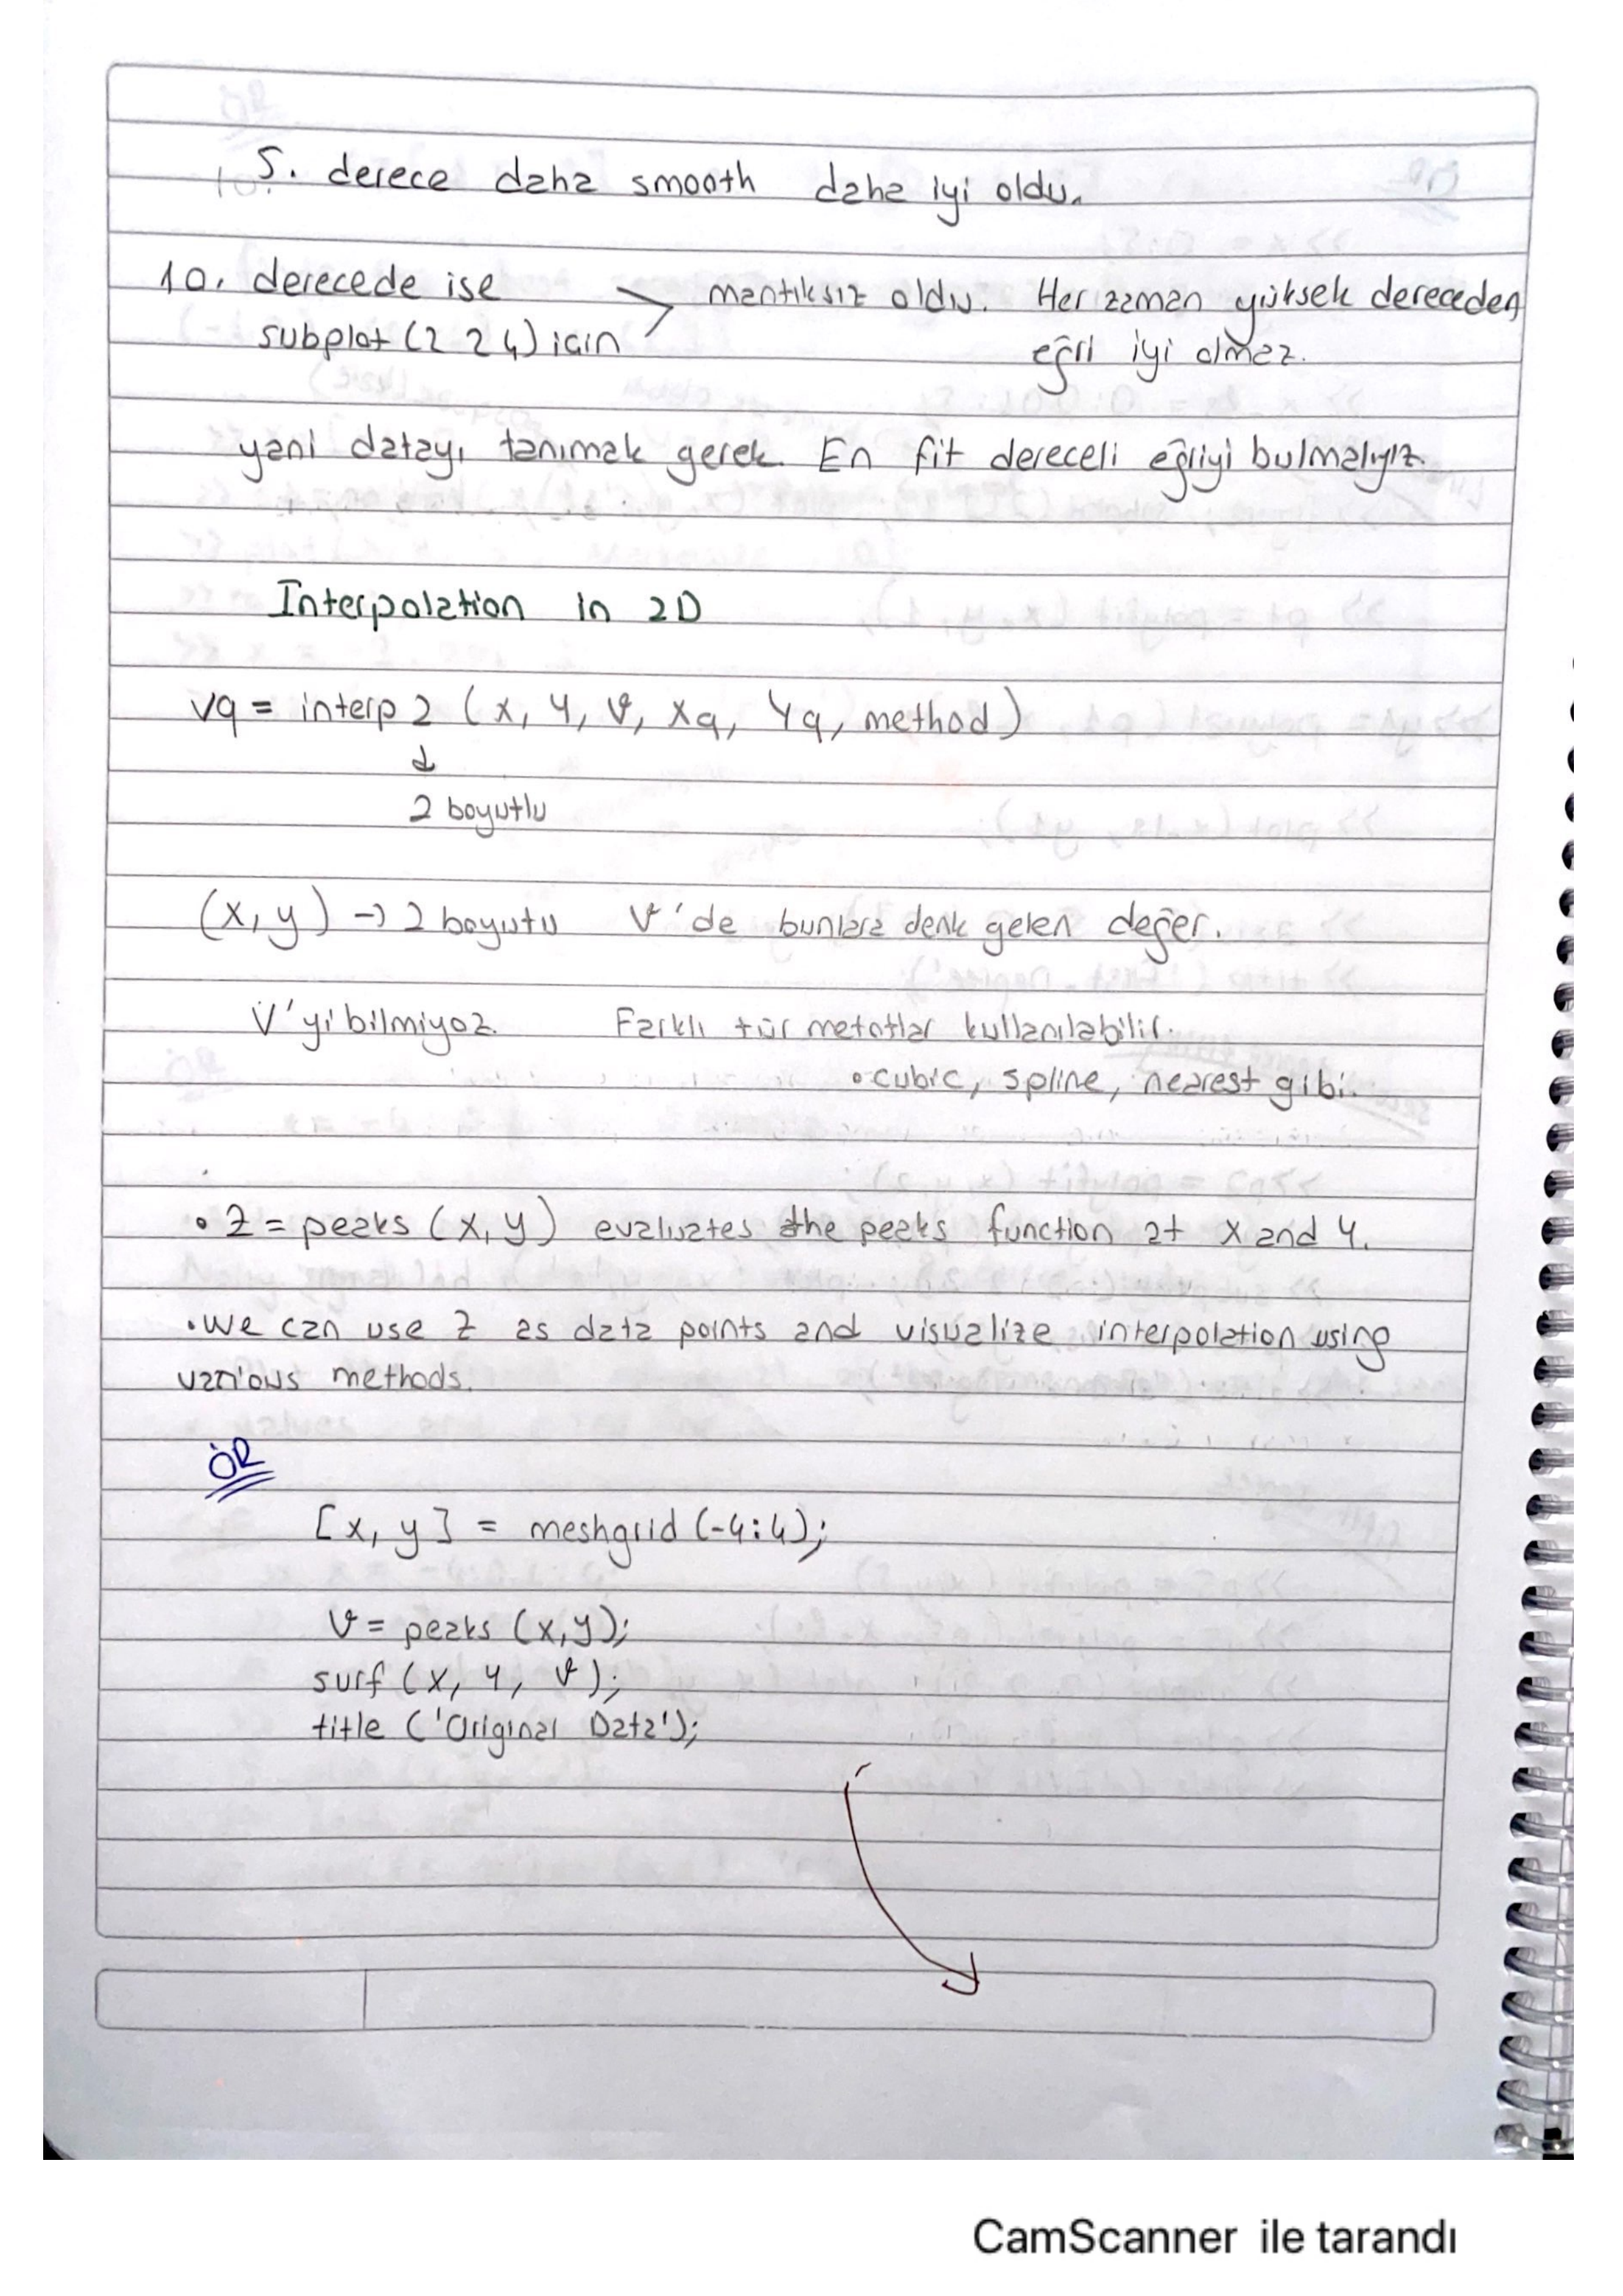 5. derece daha smooth daha iyi oldu.
10. derecede ise mantıksız oldu. Her zaman yüksek dereceden
subplot (2 2 4) için eğri iyi olmaz.
yani datayı tanımak gerek. En fit dereceli eğriyi bulmalıyız.
Interpolation in 2D
Vq = interp2 (x, y, v, xq, yq, method)
2 boyutlu
(x, y) → 2 boyutu v'de bunlara denk gelen değer.
V'yi bilmiyoz. Farklı tür metotlar kullanılabilir.
• cubic, spline, nearest gibi.
• Z = peaks (x, y) evaluates the peaks function at x and y.
• We can use Z as data points and visualize interpolation using
various methods.
ÖR
[x, y] = meshgrid (-4:4);
v = peaks (x,y);
surf (x, y, v);
title ('Original Data');
CamScanner ile tarandı